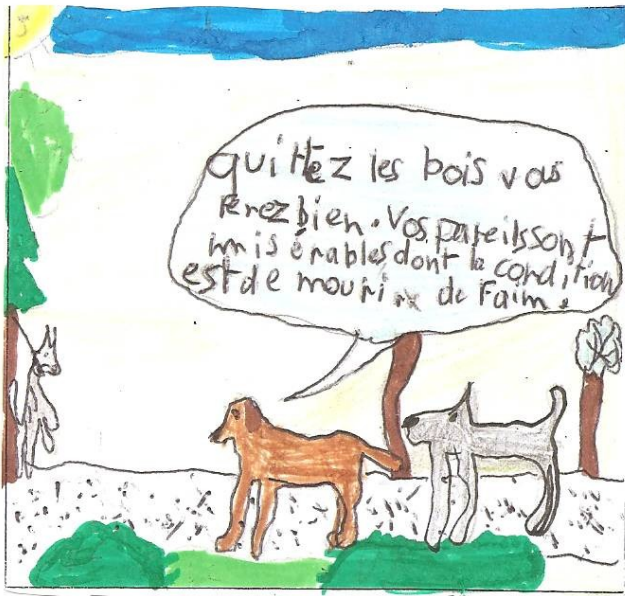 quittez les bois vous
ferez bien. Vos pareils sont
misérables dont la condition
est de mourir de faim.